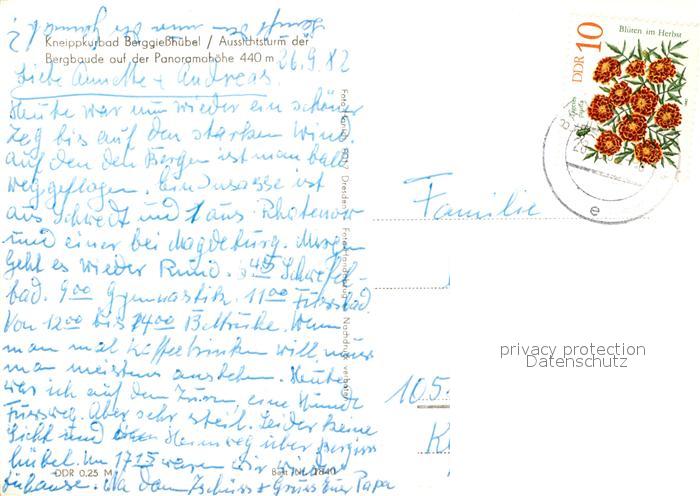 Kneippkurbad Berggießhübel / Aussichtsturm der
Bergbaude auf der Panoramahöhe 440 m
26.9.82
Liebe + Andreas.
Heute war nun wieder ein schöner
Tag bis auf den starken Wind.
auf den den Bergen ist man bald
weggeflogen. Ein Insasse ist
aus Schwedt und 1 aus Rathenow
und einer bei Magdeburg. Morgen
geht es wieder Rund. 8 45 Schwefel-
bad. 9 00 Gymnastik. 11 00 Fussbad.
Von 12 00 bis 14 00 Bettruhe. Wenn
man mal Kaffeetrinken will, muss
man meistens anstehen. Heute
war ich auf den Turm, eine Stunde
Fussweg. Aber sehr steil. Leider keine
Sicht und Heimweg über Berggies
hübel. Um 17 15 waren wir wieder
zuhause. Na dann Tschüss + Gruss Euer Papa
DDR 0,25 M
DDR 10
Blüten im Herbst
e
Familie
105
K
privacy protection
Datenschutz